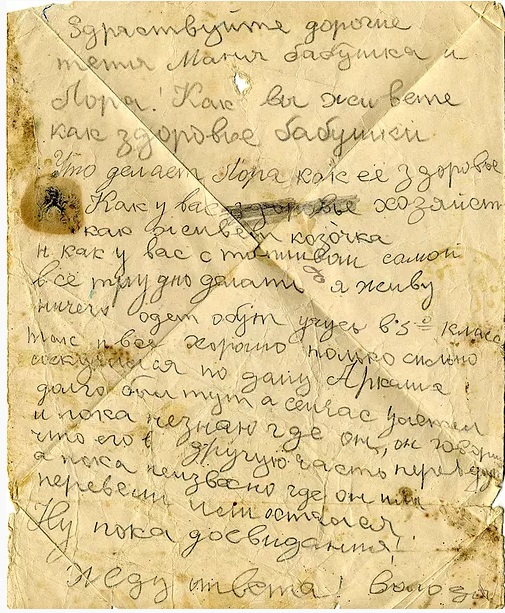 Здраствуйте дорогие
тетя Маня бабушка и
Лора! Как вы живете
как здоровье бабушки
Что делает Лора как её здоровье
Как у вас здоровье хозяйст
как живёт козочка
и как у вас с топливом самой
всё трудно делать я живу
ничего одет обут учусь в 5ом класс
так и всё хорошо только сильно
соскучился по дому Аркаша
долго был тут а сейчас улетел
и пока незнаю где он, он говорил
что его в другую часть переведут
а пока неизвесно где он или
перевели или остался
Ну пока досвидания!
Жду ответа! Володя